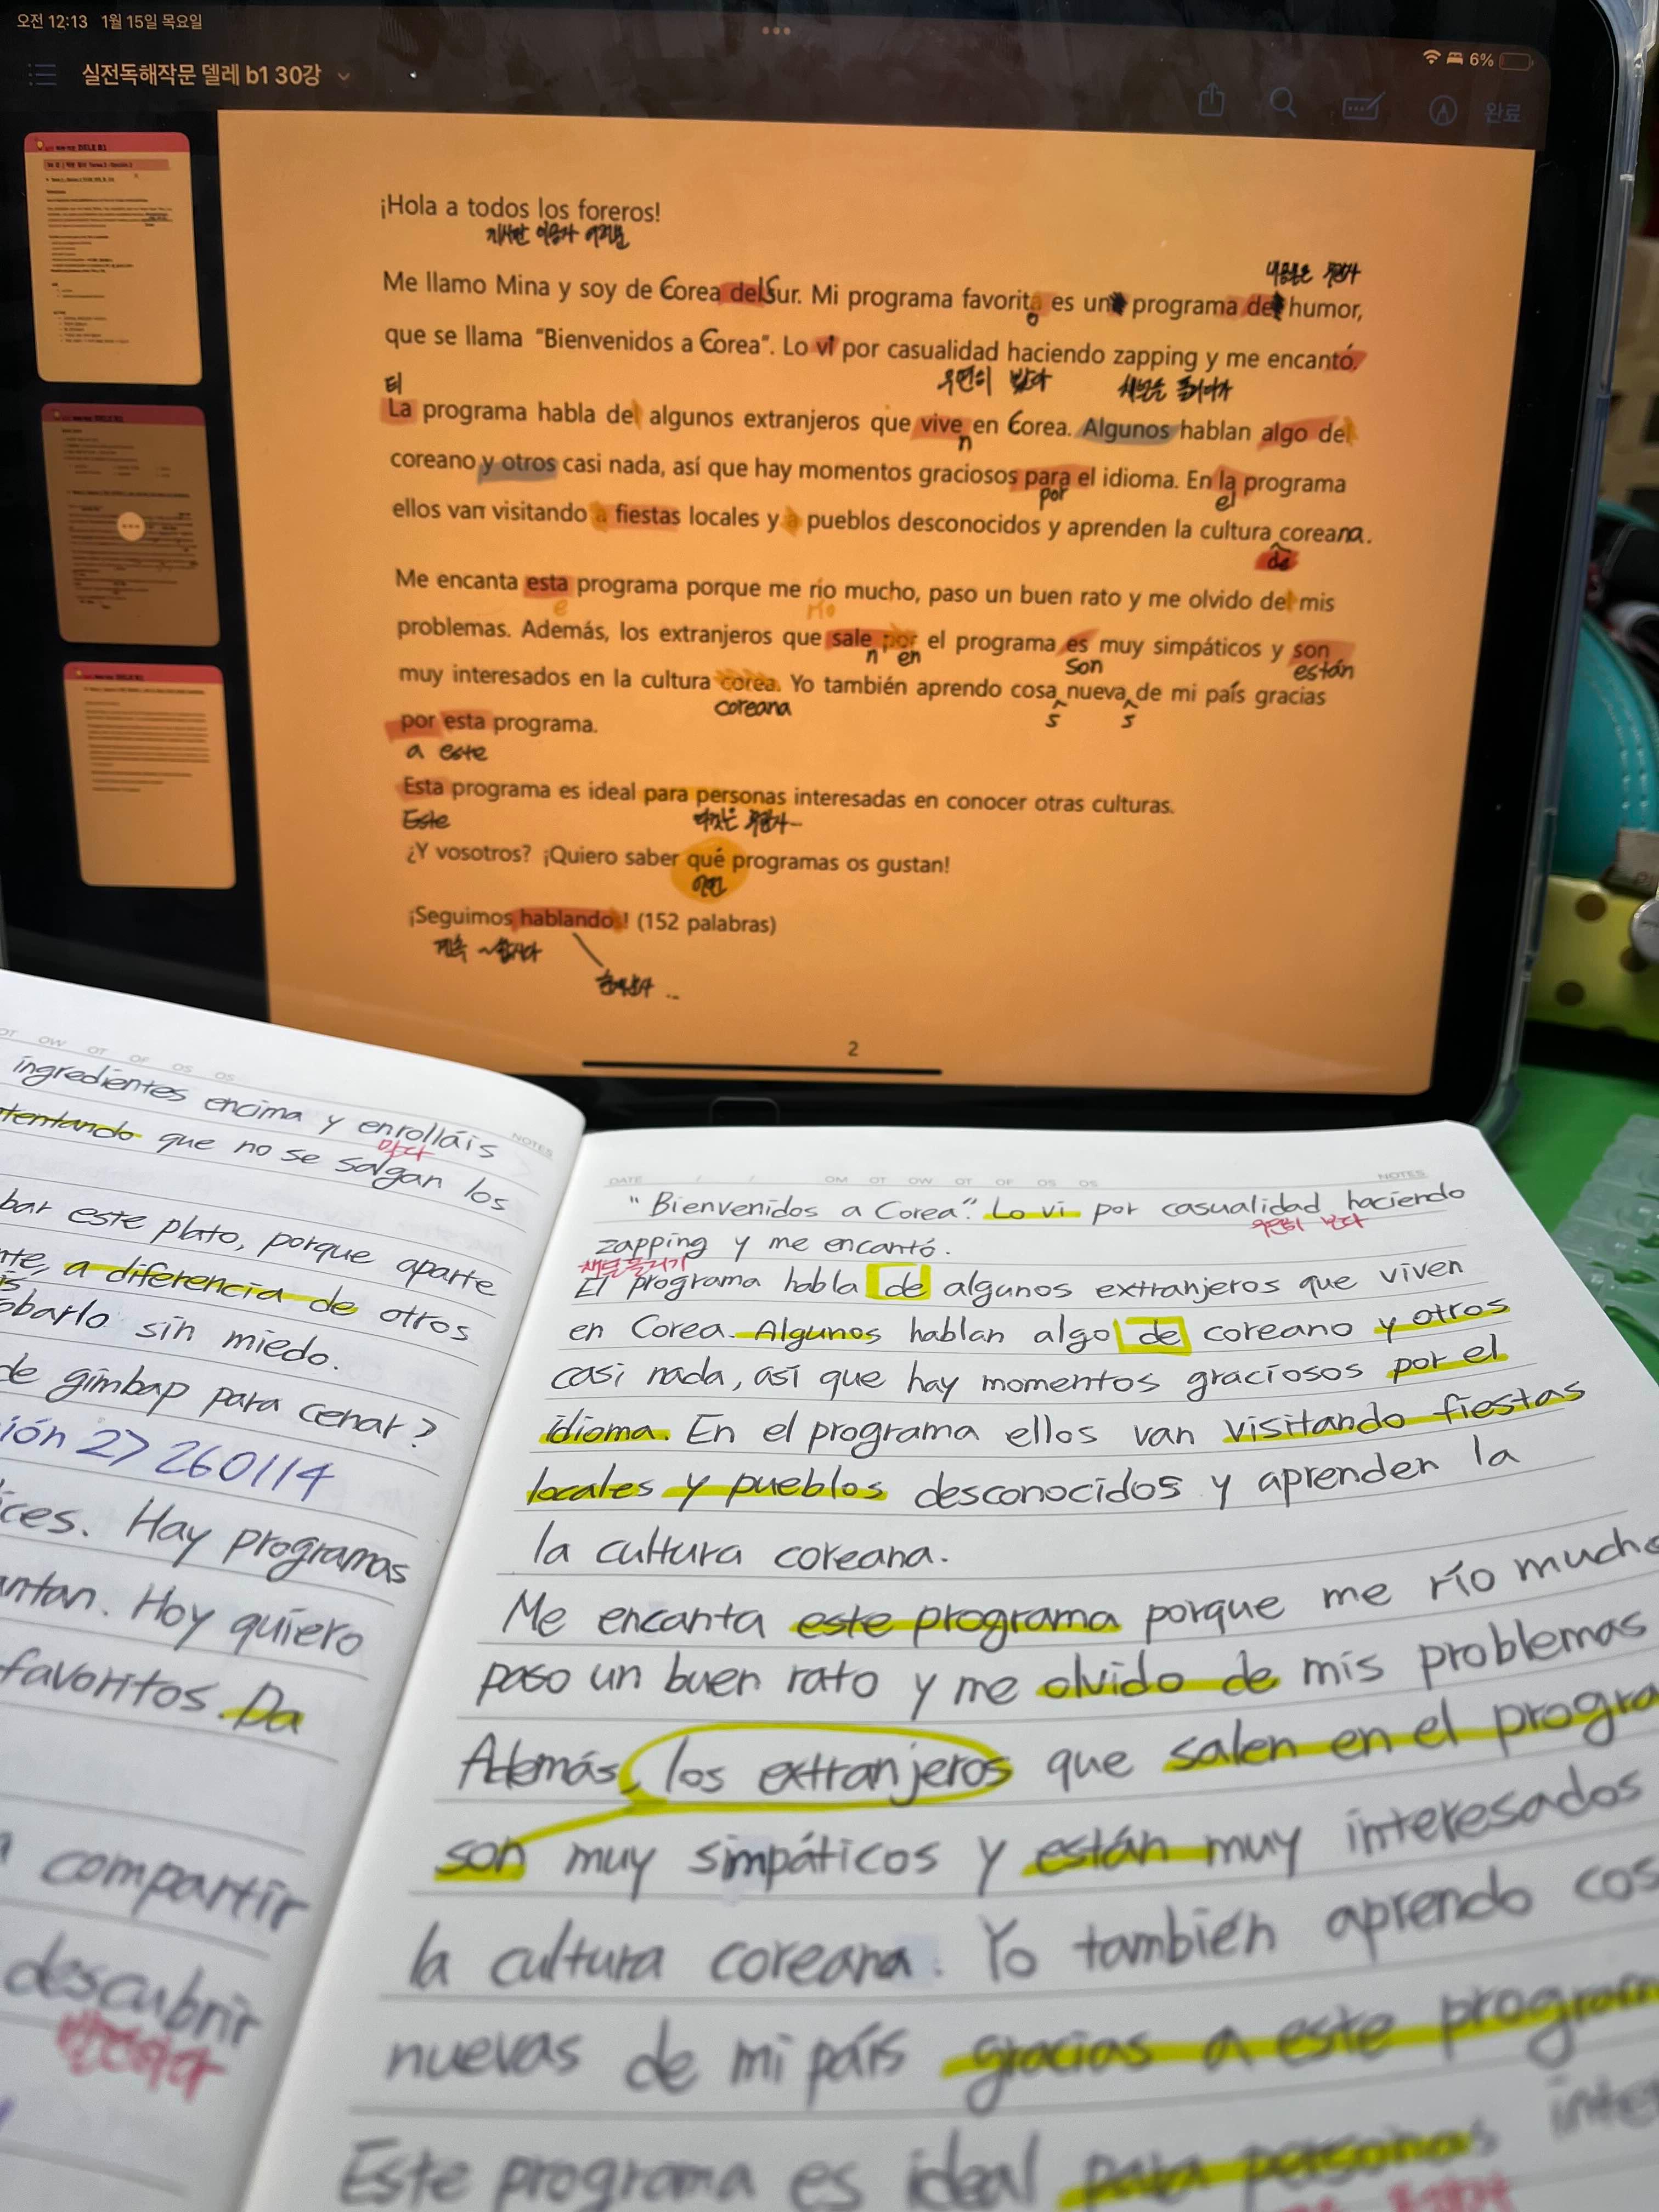 오전 12:13 1월 15일 목요일
6%
실전독해작문 델레 b1 30강
완료
¡Hola a todos los foreros!
게시판 이용자 여러분
내용은 무관사
Me llamo Mina y soy de Corea del Sur. Mi programa favorito es un programa de humor,
que se llama "Bienvenidos a Corea". Lo vi por casualidad haciendo zapping y me encantó.
El
우연히 보다
채널을 돌리다가
La programa habla de algunos extranjeros que vive en Corea. Algunos hablan algo de
n
coreano y otros casi nada, así que hay momentos graciosos para el idioma. En la programa
por
el
ellos van visitando a fiestas locales y a pueblos desconocidos y aprenden la cultura coreana.
de
Me encanta esta programa porque me río mucho, paso un buen rato y me olvido de mis
e
río
problemas. Además, los extranjeros que sale por el programa es muy simpáticos y son
n en
son
están
muy interesados en la cultura corea. Yo también aprendo cosa nueva de mi país gracias
coreana
s
s
por esta programa.
a este
Esta programa es ideal para personas interesadas en conocer otras culturas.
Este
¿Y vosotros? ¡Quiero saber qué programas os gustan!
어떤
¡Seguimos hablando! (152 palabras)
계속 ~합시다
2
NOTES
ingredientes encima y enrolláis
말다
que no se salgan los
este plato, porque aparte
a diferencia de otros
sin miedo.
de gimbap para cenar?
27 260114
Hay programas
Hoy quiero
favoritos. Da
compartir
descubrir
발견하다
DATE / / NOTES
"Bienvenidos a Corea". Lo vi por casualidad haciendo
우연히 보다
zapping y me encantó.
채널돌리기
El programa habla de algunos extranjeros que viven
en Corea. Algunos hablan algo de coreano y otros
casi nada, así que hay momentos graciosos por el
idioma. En el programa ellos van visitando fiestas
locales y pueblos desconocidos y aprenden la
la cultura coreana.
Me encanta este programa porque me río mucho
paso un buen rato y me olvido de mis problemas
Además, los extranjeros que salen en el progra
son muy simpáticos y están muy interesados
la cultura coreana. Yo también aprendo cos
nuevas de mi país gracias a este program
Este programa es ideal para personas inte